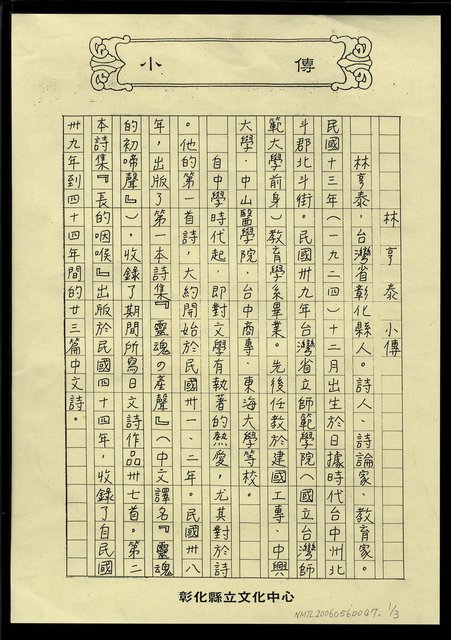 小傳
林亨泰小傳
林亨泰，台灣省彰化縣人。詩人、詩論家、教育家。
民國十三年（一九二四）十二月出生於日據時代台中州北
斗郡北斗街。民國卅九年台灣省立師範學院（國立台灣師
範大學前身）教育學系畢業。先後任教於建國工專、中興
大學、中山醫學院、台中商專、東海大學等校。
自中學時代起，即對文學有執著的熱愛，尤其對於詩
。他的第一首詩，大約開始於民國卅一、二年。民國卅八
年，出版了第一本詩集『靈魂の產聲』（中文譯名『靈魂
的初啼聲』），收錄了期間所寫日文詩作品卅七首。第二
本詩集『長的咽喉』出版於民國四十四年，收錄了自民國
卅九年到四十四年間的廿三篇中文詩。
彰化縣立文化中心
NMTL20060560047. 1/3